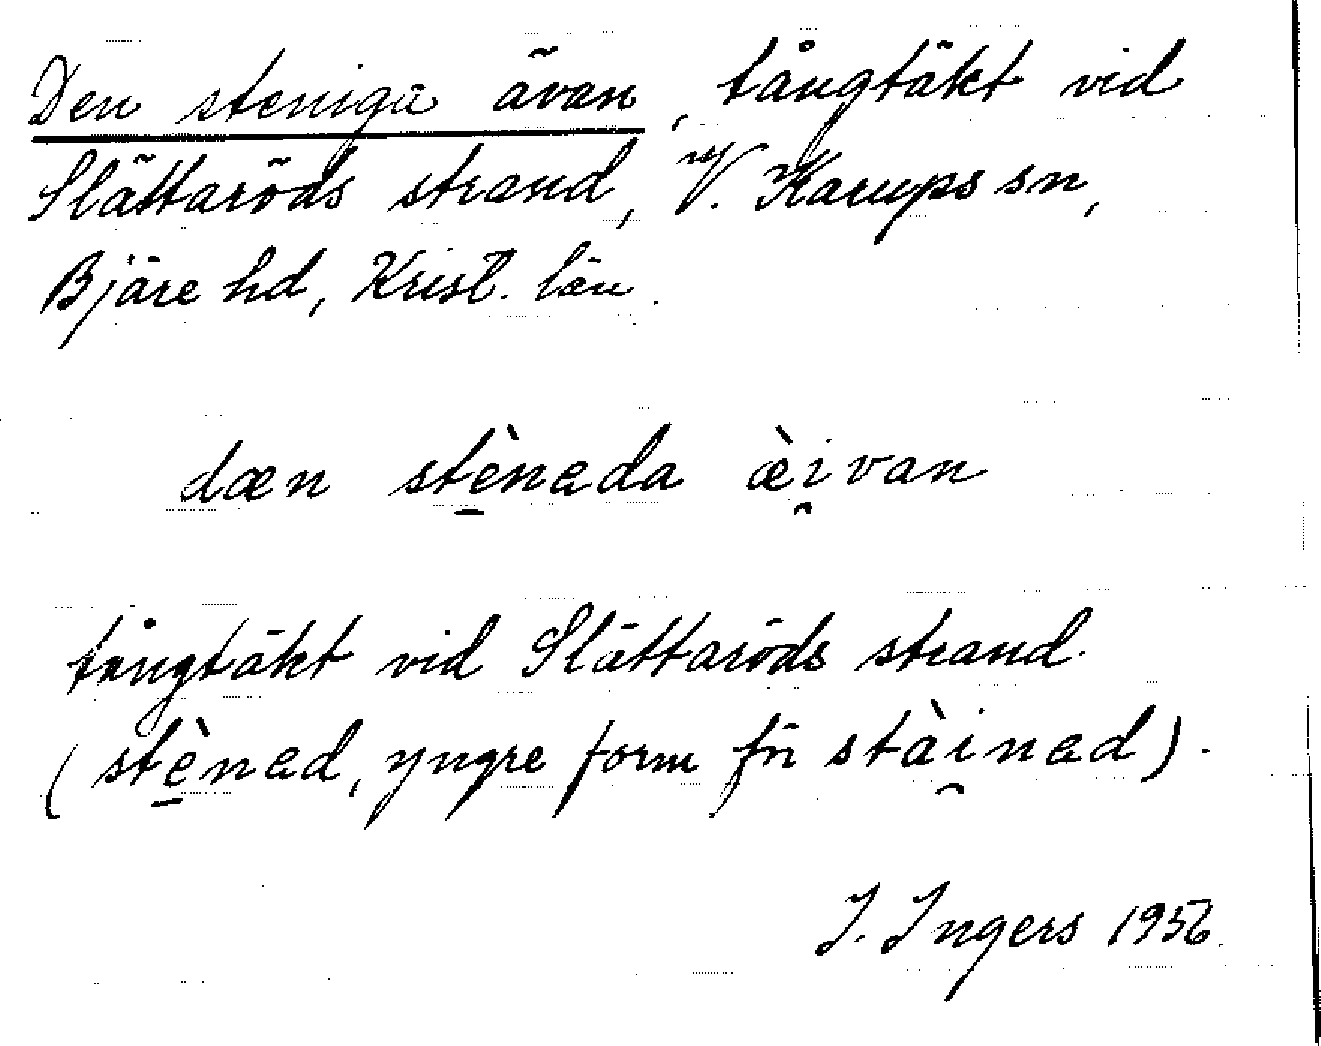 Den steniga ävan, tångtäkt vid
Slättaröds strand, V. Karups sn,
Bjäre hd, Krist. län.
dæn stè̱nada æ̀i̯van
tångtäkt vid Slättaröds strand.
(stè̱nad, yngre form för stài̯nad).
I. Ingers 1956.